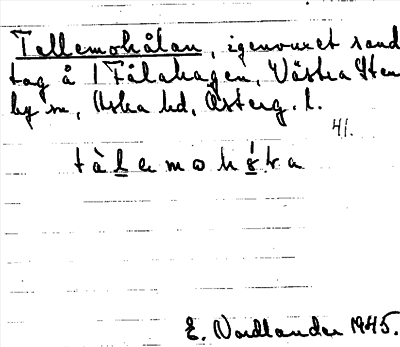 Tallemohålan, igenvuxet sand
tag å 1 Fålahagen, Västra Sten
by sn, Aska hd, Österg. l.
41.
E. Nordlander 1945.